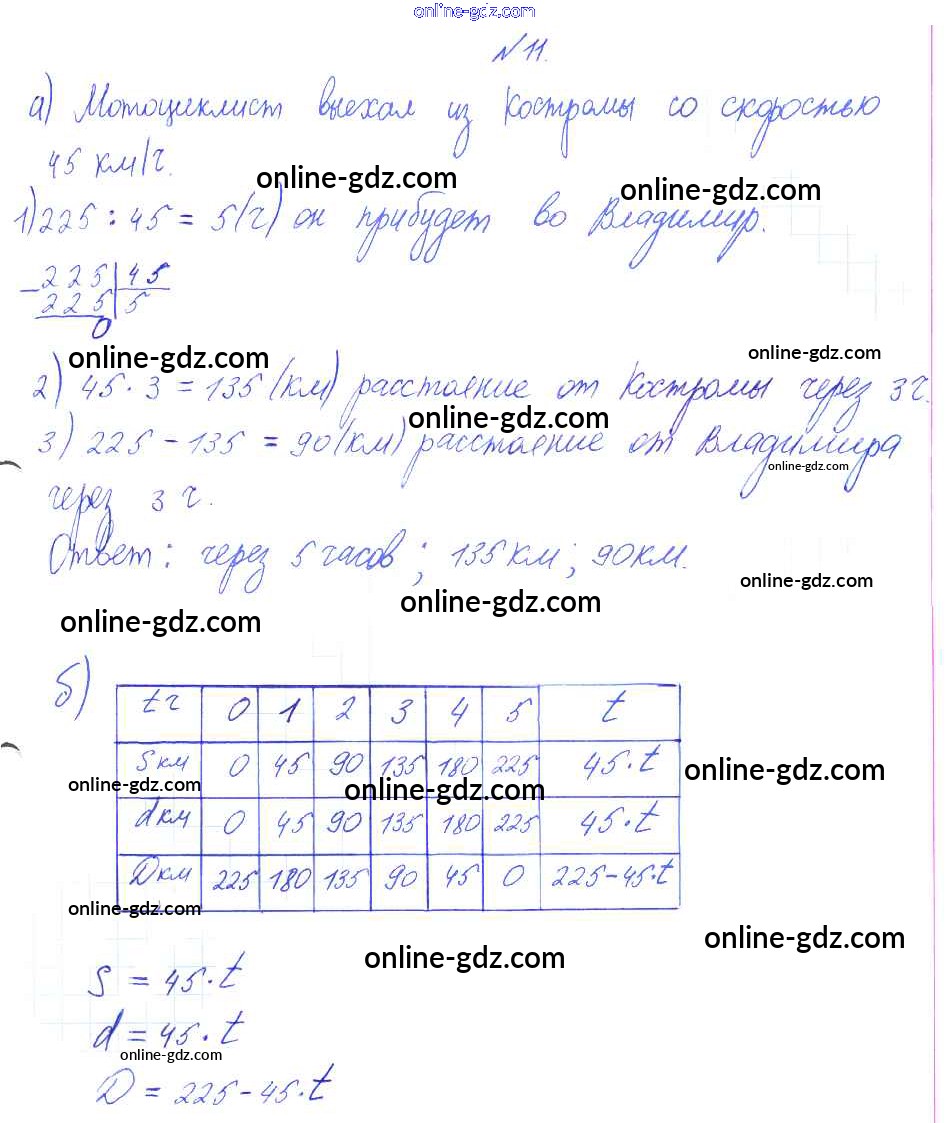 online-gdz.com
№ 11.
а) Мотоциклист выехал из Костромы со скоростью
45 км/ч.
online-gdz.com
online-gdz.com
1) 225 : 45 = 5 (ч) он прибудет во Владимир.
- 225 | 45
225 | 5
0
online-gdz.com
online-gdz.com
2) 45 · 3 = 135 (км) расстояние от Костромы через 3 ч.
online-gdz.com
3) 225 - 135 = 90 (км) расстояние от Владимира
online-gdz.com
через 3 ч.
Ответ: через 5 часов; 135 км; 90 км.
online-gdz.com
online-gdz.com
online-gdz.com
б)
t ч 0 1 2 3 4 5 t
S км 0 45 90 135 180 225 45·t
online-gdz.com
online-gdz.com
online-gdz.com
d км 0 45 90 135 180 225 45·t
D км 225 180 135 90 45 0 225-45·t
online-gdz.com
online-gdz.com
online-gdz.com
S = 45·t
d = 45·t
online-gdz.com
D = 225 - 45·t